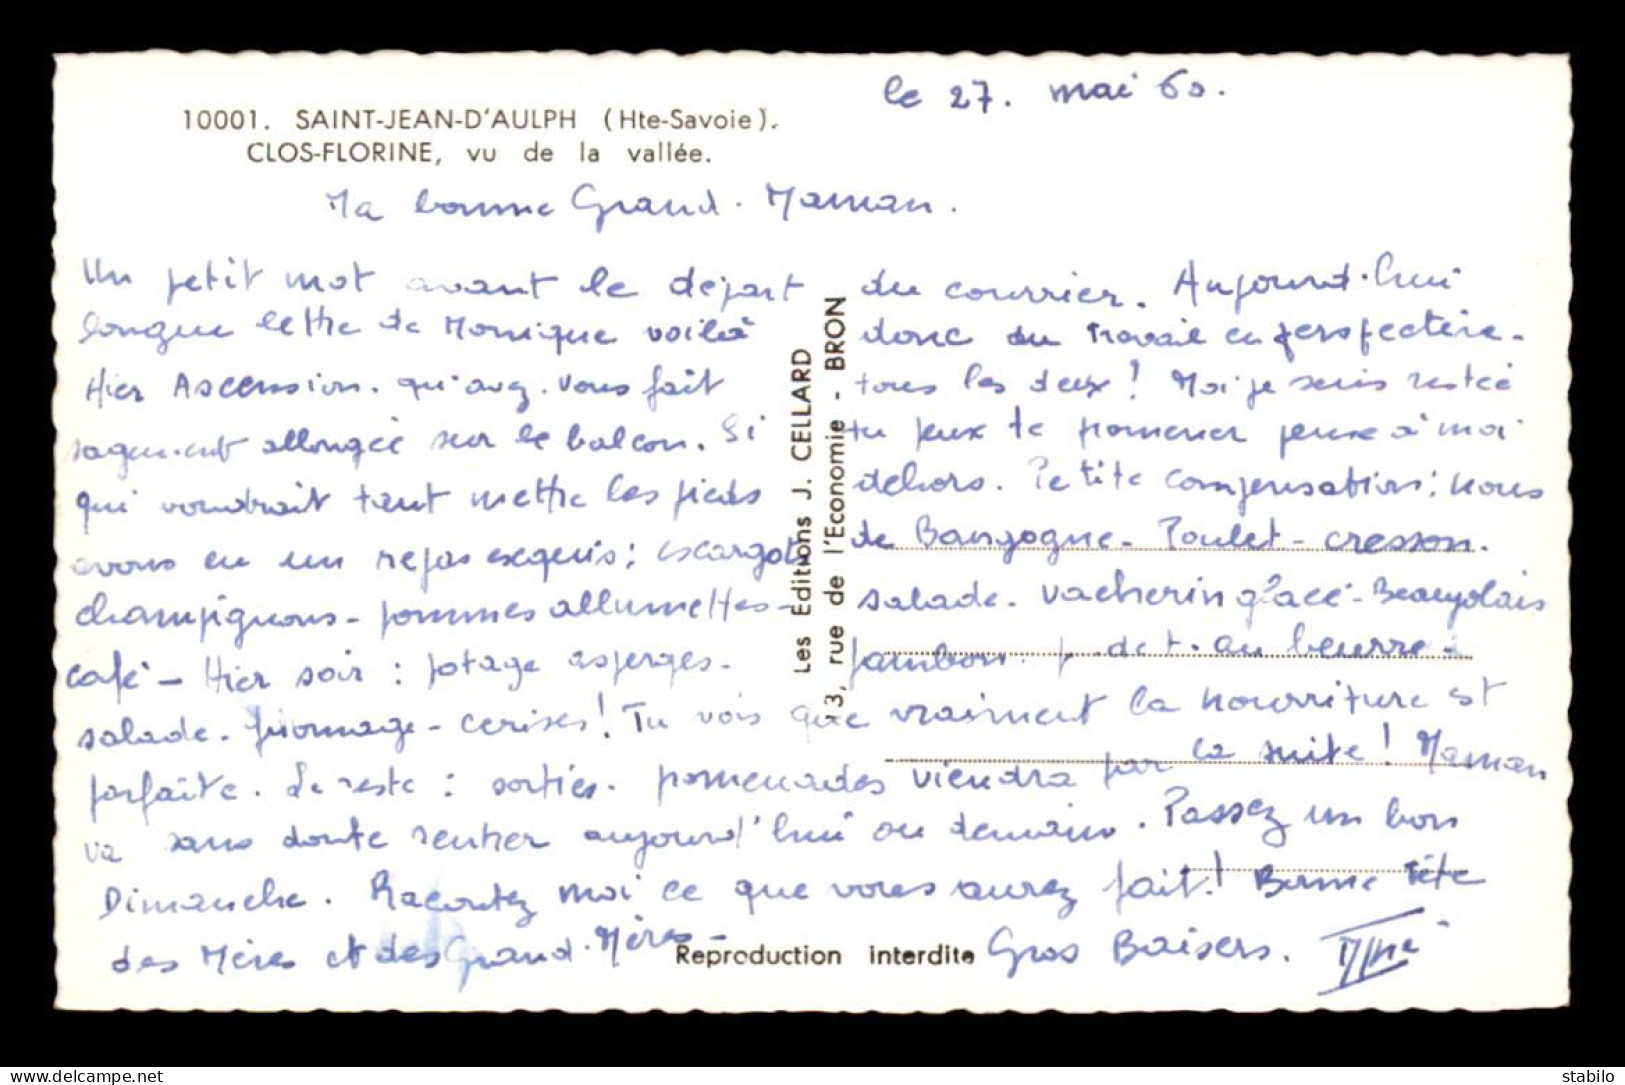 le 27. mai 60.
10001. SAINT-JEAN-D'AULPH (Hte-Savoie).
CLOS-FLORINE, vu de la vallée.
Ma bonne Grand-Maman.
Un petit mot avant le départ du courrier. Aujourd'hui
longue lettre de Monique voilà donc du travail en perspective.
Hier Ascension. qu'avez-vous fait tous les deux! Moi je suis restée
sagement allongée sur le balcon. Si tu peux te promener pense à moi
qui voudrait tant mettre les pieds dehors. Petite compensation: nous
avons eu un repas exquis: escargots de Bourgogne - Poulet - cresson.
champignons - pommes allumettes - salade. vacherin glacé - Beaujolais
café - Hier soir: potage asperges. jambon. p. de t. au beurre -
salade. fromage - cerises! Tu vois que vraiment la nourriture est
parfaite. Le reste: sorties. promenades viendra par la suite! Maman
va sans doute rentrer aujourd'hui ou demain. Passez un bon
Dimanche. Racontez moi ce que vous aurez fait! Bonne Fête
des Mères et des Grand-Mères - Gros Baisers.
Les Editions J. CELLARD
3, rue de l'Economie - BRON
Reproduction interdite
delcampe.net
stabilo